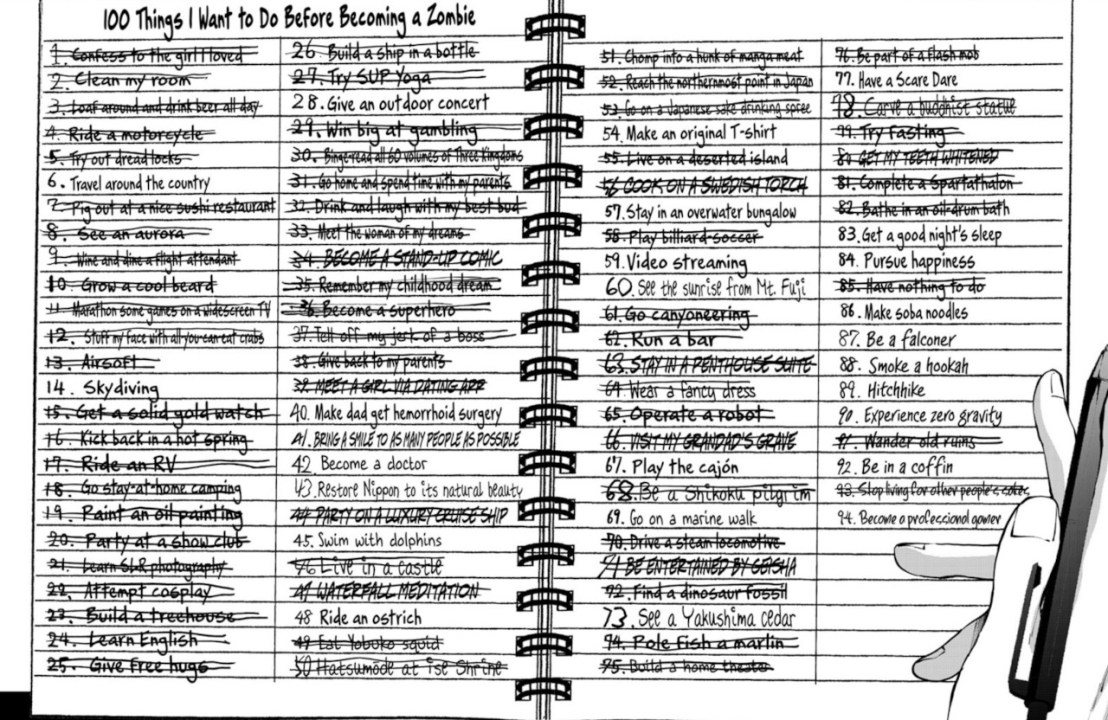 100 Things I Want to Do Before Becoming a Zombie
1. Confess to the girl I loved
2. Clean my room
3. Loaf around and drink beer all day
4. Ride a motorcycle
5. Try out dreadlocks
6. Travel around the country
7. Pig out at a nice sushi restaurant
8. See an aurora
9. Wine and dine a flight attendant
10. Grow a cool beard
11. Marathon some games on a widescreen TV
12. Stuff my face with all-you-can-eat crabs
13. Airsoft
14. Skydiving
15. Get a solid gold watch
16. Kick back in a hot spring
17. Ride an RV
18. Go stay-at-home camping
19. Paint an oil painting
20. Party at a show club
21. Learn SLR photography
22. Attempt cosplay
23. Build a treehouse
24. Learn English
25. Give free hugs
26. Build a ship in a bottle
27. Try SUP Yoga
28. Give an outdoor concert
29. Win big at gambling
30. Binge-read all 60 volumes of Three Kingdoms
31. Go home and spend time with my parents
32. Drink and laugh with my best bud
33. Meet the woman of my dreams
34. BECOME A STAND-UP COMIC
35. Remember my childhood dream
36. Become a superhero
37. Tell off my jerk of a boss
38. Give back to my parents
39. MEET A GIRL VIA DATING APP
40. Make dad get hemorrhoid surgery
41. BRING A SMILE TO AS MANY PEOPLE AS POSSIBLE
42. Become a doctor
43. Restore Nippon to its natural beauty
44 PARTY ON A LUXURY CRUISE SHIP
45. Swim with dolphins
46 Live in a castle
47 WATERFALL MEDITATION
48 Ride an ostrich
49 Eat Yobuko squid
50 Hatsumōde at Ise Shrine
51. Chomp into a hunk of manga meat
52. Reach the northernmost point in Japan
53 Go on a Japanese sake drinking spree
54. Make an original T-shirt
55. Live on a deserted island
56 COOK ON A SWEDISH TORCH
57. Stay in an overwater bungalow
58. Play billiard soccer
59. Video streaming
60. See the sunrise from Mt. Fuji
61. Go canyoneering
62. Run a bar
63. STAY IN A PENTHOUSE SUITE
64 Wear a fancy dress
65. Operate a robot
66. VISIT MY GRANDAD'S GRAVE
67. Play the cajón
68. Be a Shikoku pilgrim
69. Go on a marine walk
70. Drive a steam locomotive
71 BE ENTERTAINED BY GEISHA
72. Find a dinosaur fossil
73. See a Yakushima cedar
74. Pole fish a marlin
75. Build a home theater
76. Be part of a flash mob
77. Have a Scare Dare
78. Carve a buddhist statue
79. Try Fasting
80 GET MY TEETH WHITENED
81. Complete a Spartathalon
82. Bathe in an oil-drum bath
83. Get a good night's sleep
84. Pursue happiness
85. Have nothing to do
86. Make soba noodles
87. Be a falconer
88. Smoke a hookah
89. Hitchhike
90. Experience zero gravity
91. Wander old ruins
92. Be in a coffin
93. Stop living for other people's sakes
94. Become a professional gamer